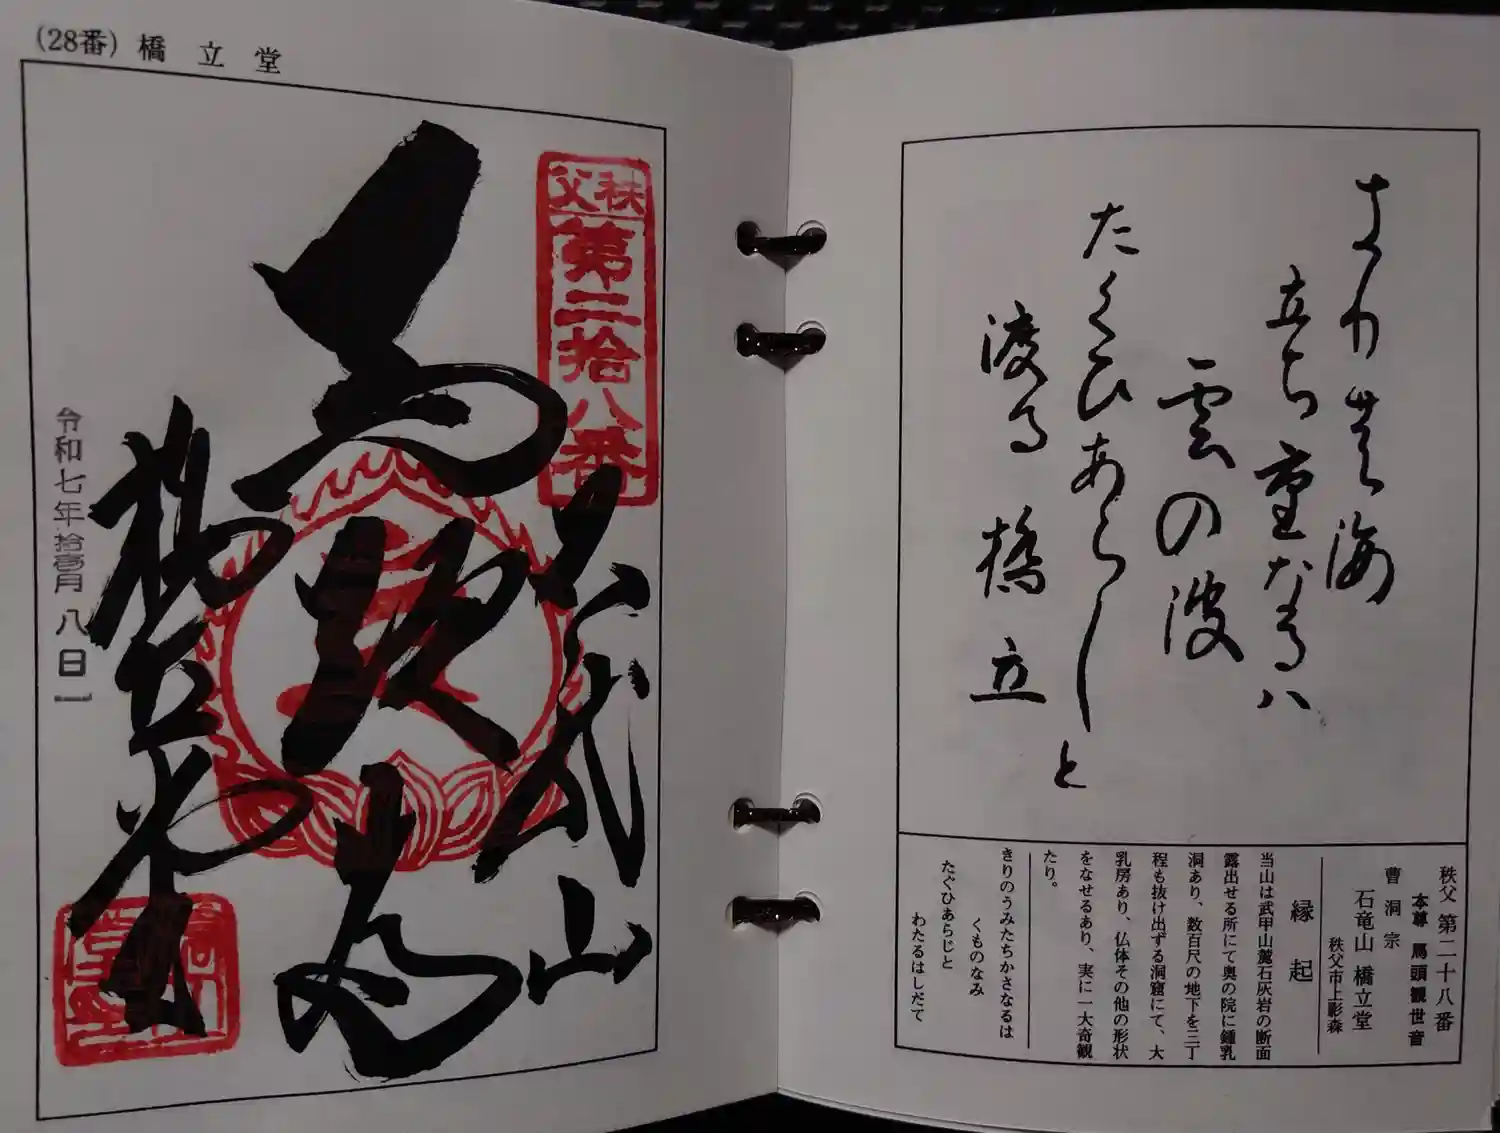 (28番) 橋立堂
秩父
第二拾八番
武甲山
馬頭尊
橋立堂
令和七年拾壱月八日
きりの海
立ち重なるハ
雲の波
たくひあらしと
渡る橋立
秩父 第二十八番
本尊 馬頭観世音
曹洞宗
石竜山 橋立堂
秩父市上影森
縁起
当山は武甲山麓石灰岩の断面
露出せる所にて奥の院に鍾乳
洞あり、数百尺の地下を三丁
程も抜け出ずる洞窟にて、大
乳房あり、仏体その他の形状
をなせるあり、実に一大奇観
たり。
きりのうみたちかさなるは
くものなみ
たぐひあらじと
わたるはしだて